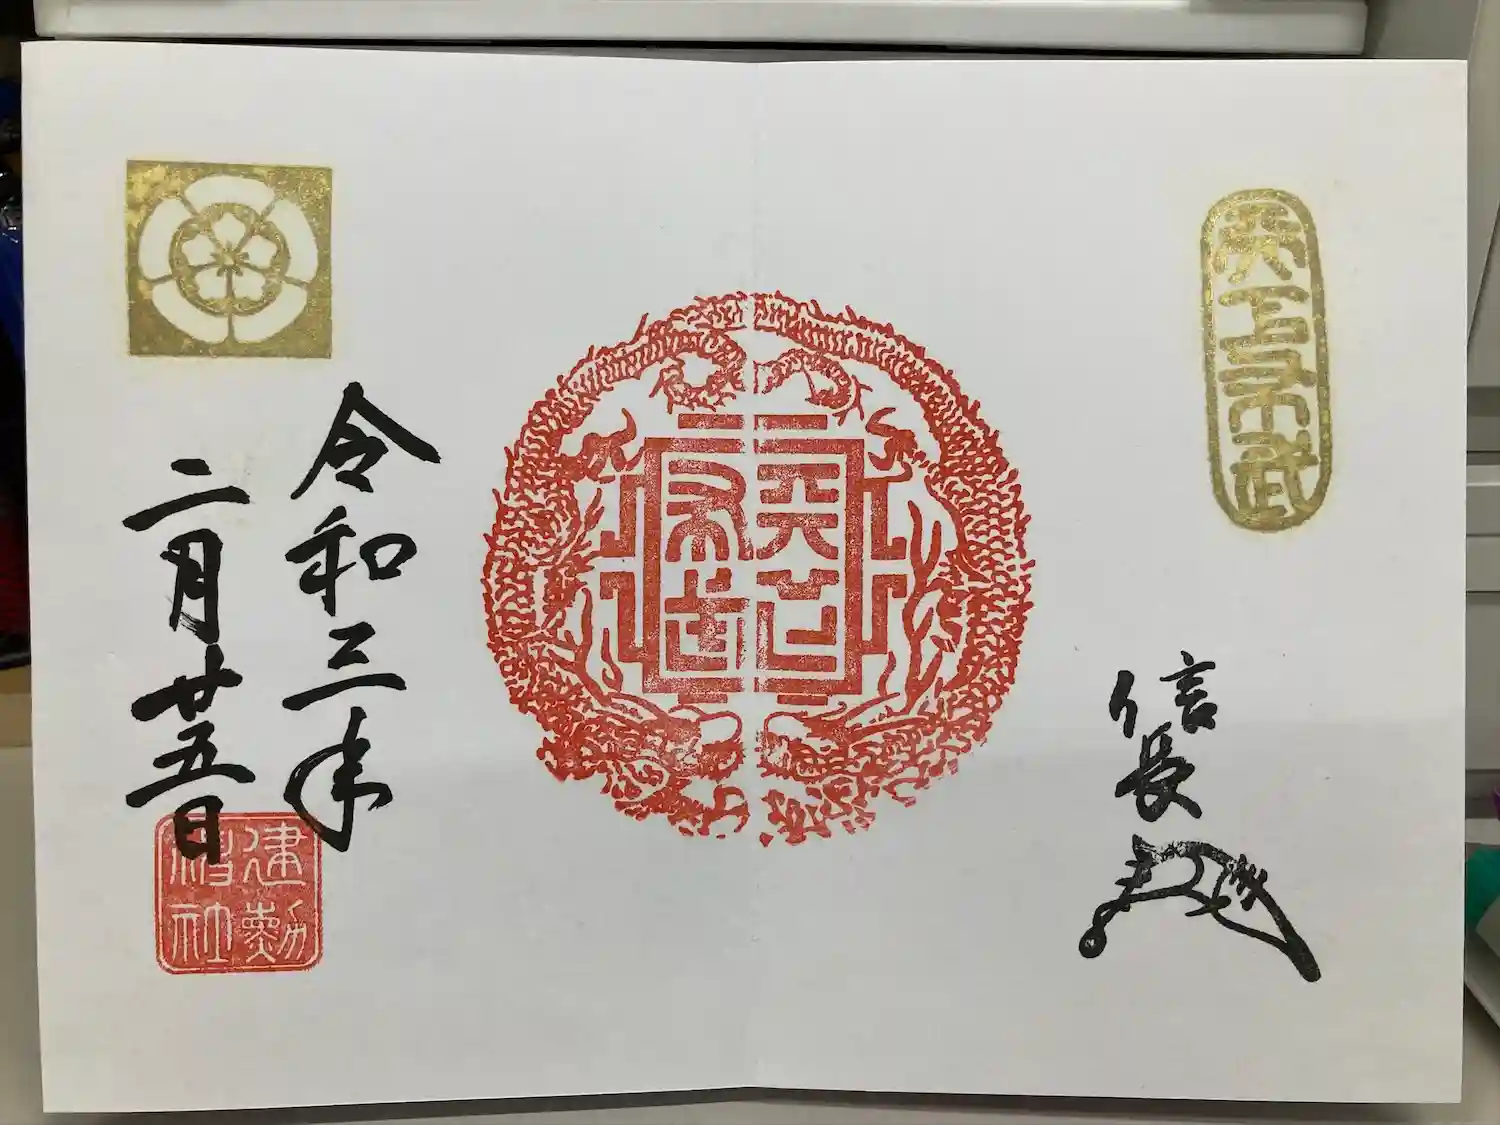 天下布武
信長
天下布武
令和三年
二月廿五日
建勲神社